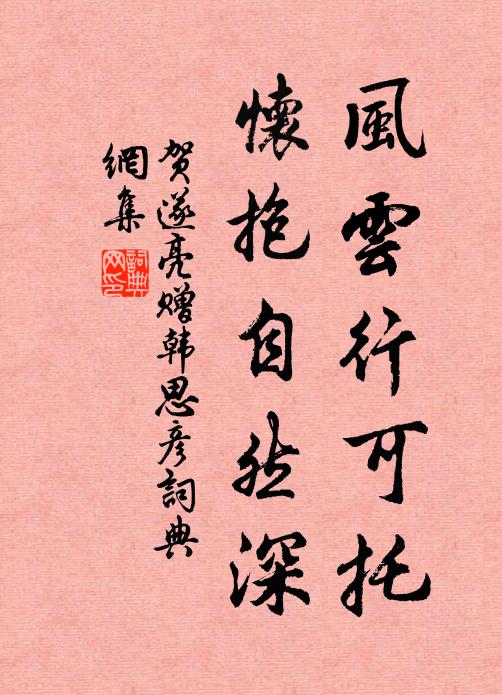 風雲行可托
懷抱自然深
贺遂亮赠韩思彦詞典
網集
詞典网印